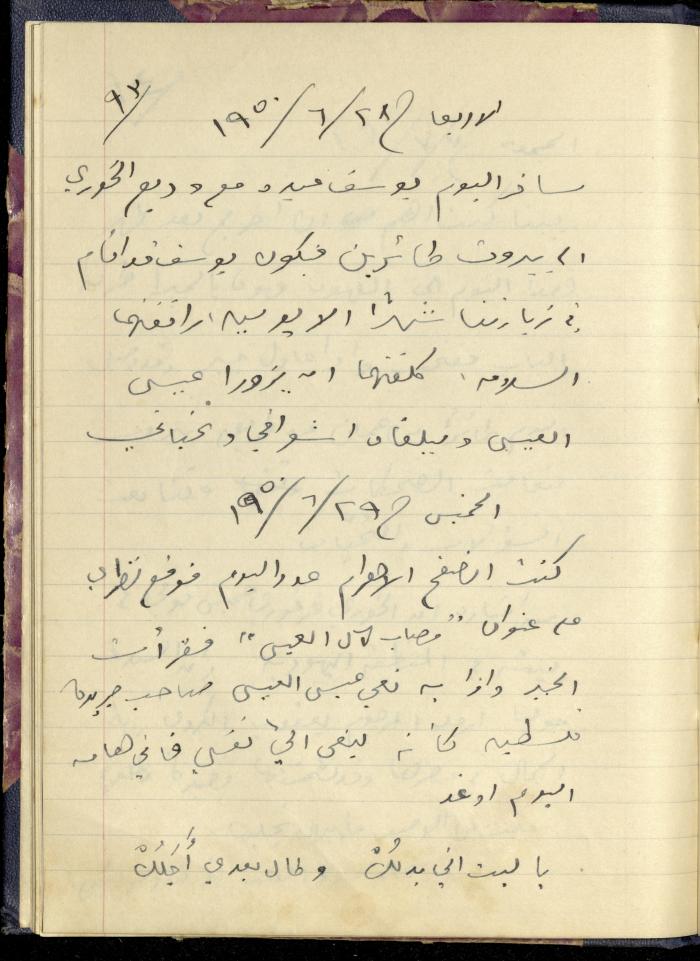 ٩٣/
الاربعا ٢٨/٦/١٩٥٠
سافر اليوم يوسف عبده مع وديع الخوري
الى بيروت طائرين فيكون يوسف قد اقام
في زيارتنا شهرًا الا يومين رافقتهما
السلامه. كلفتهما ان يزورا عيسى
العيسى ويبلغاه اشواقي وتحياتي
الخميس ٢٩/٦/١٩٥٠
كنت اتصفح الاهرام عدد اليوم فوقع نظري
على عنوان "مصاب آل العيسى" فقرأت
الخبر واذا به نعي عيسى العيسى صاحب جريدة
فلسطين كأنه ينعى اليّ نفسي فاني هامة
اليوم او غد
يا ليت اني بدلك وطال بعدي أجلك